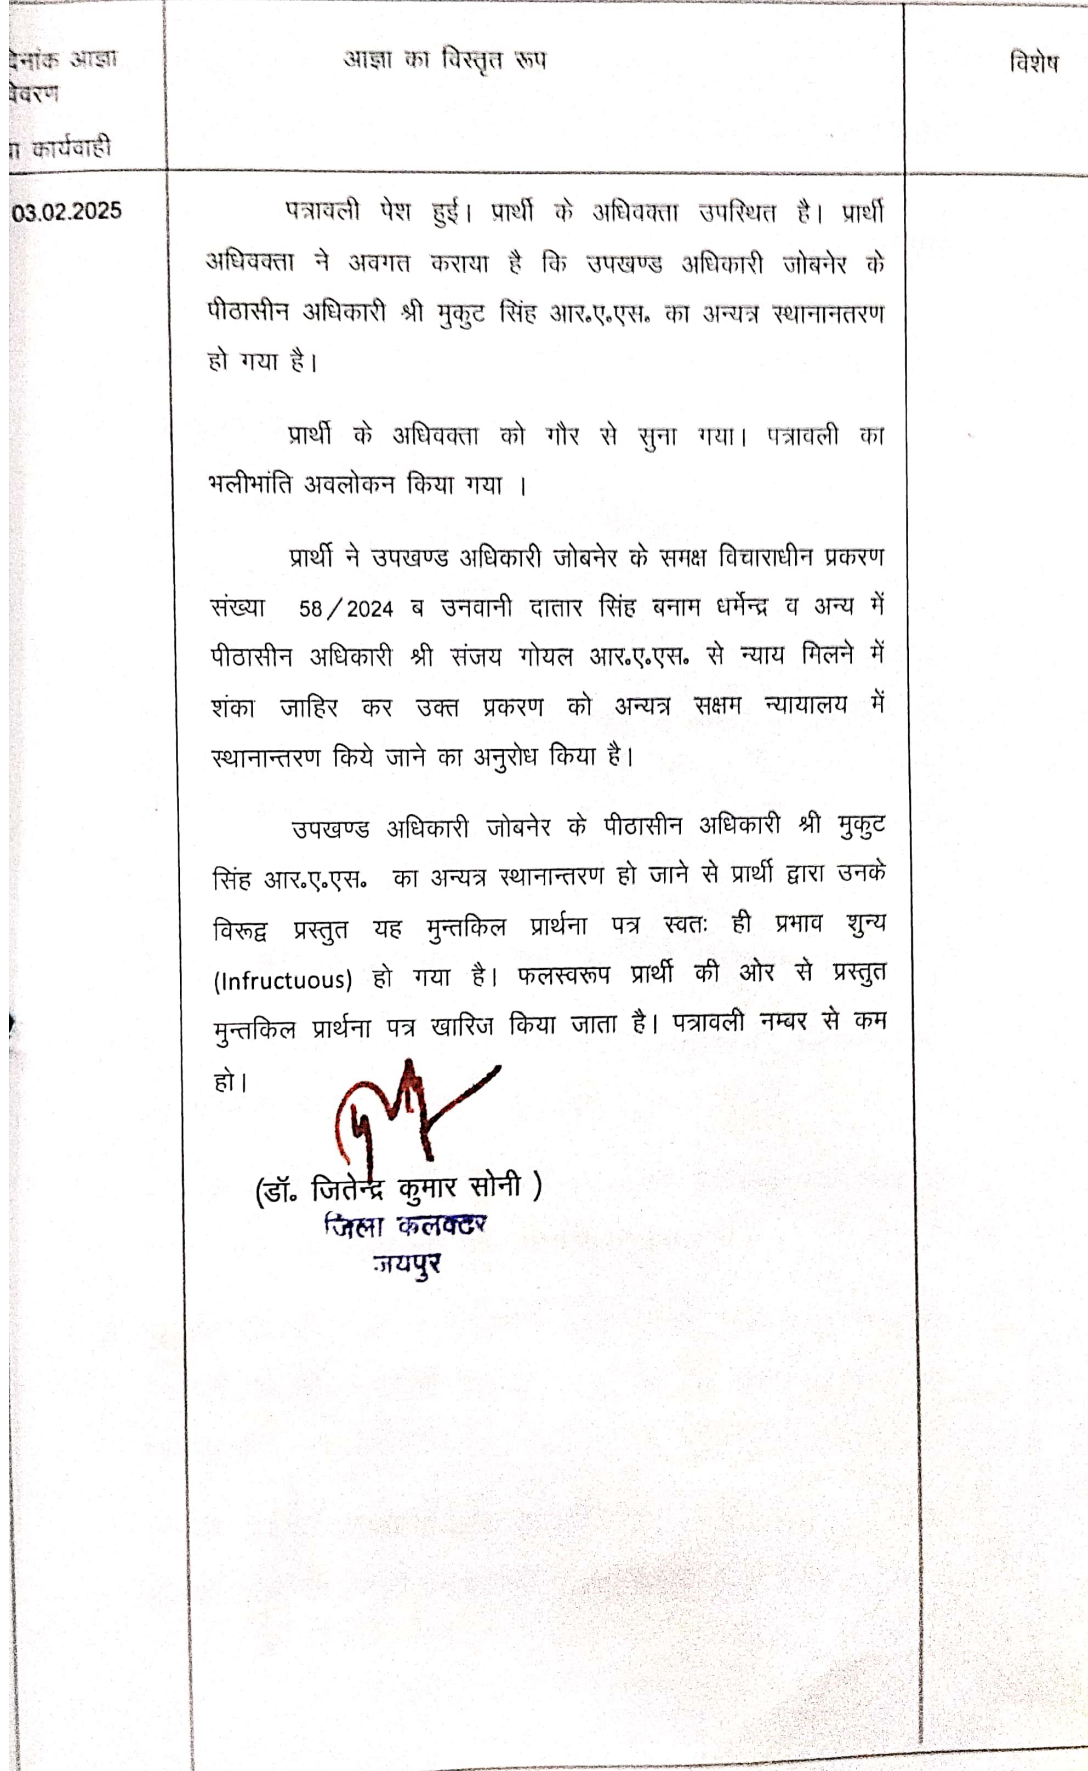 दिनांक आज्ञा
विवरण
कार्यवाही
आज्ञा का विस्तृत रूप
विशेष
03.02.2025
पत्रावली पेश हुई। प्रार्थी के अधिवक्ता उपस्थित है। प्रार्थी
अधिवक्ता ने अवगत कराया है कि उपखण्ड अधिकारी जोबनेर के
पीठासीन अधिकारी श्री मुकुट सिंह आर.ए.एस. का अन्यत्र स्थानानतरण
हो गया है।
प्रार्थी के अधिवक्ता को गौर से सुना गया। पत्रावली का
भलीभांति अवलोकन किया गया ।
प्रार्थी ने उपखण्ड अधिकारी जोबनेर के समक्ष विचाराधीन प्रकरण
संख्या 58/2024 ब उनवानी दातार सिंह बनाम धर्मेन्द्र व अन्य में
पीठासीन अधिकारी श्री संजय गोयल आर.ए.एस. से न्याय मिलने में
शंका जाहिर कर उक्त प्रकरण को अन्यत्र सक्षम न्यायालय में
स्थानान्तरण किये जाने का अनुरोध किया है।
उपखण्ड अधिकारी जोबनेर के पीठासीन अधिकारी श्री मुकुट
सिंह आर.ए.एस. का अन्यत्र स्थानान्तरण हो जाने से प्रार्थी द्वारा उनके
विरूद्व प्रस्तुत यह मुन्तकिल प्रार्थना पत्र स्वतः ही प्रभाव शुन्य
(Infructuous) हो गया है। फलस्वरूप प्रार्थी की ओर से प्रस्तुत
मुन्तकिल प्रार्थना पत्र खारिज किया जाता है। पत्रावली नम्बर से कम
हो।
(डॉ. जितेन्द्र कुमार सोनी )
जिला कलक्टर
जयपुर